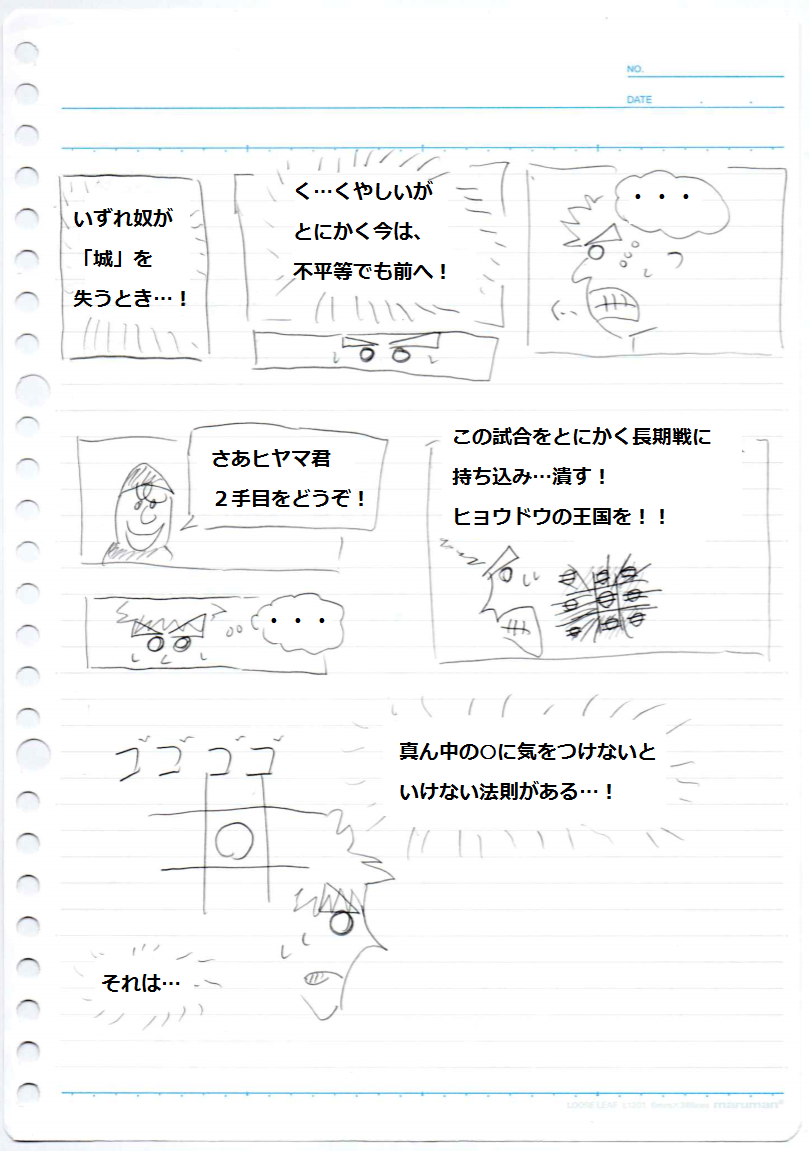 NO.
DATE
いずれ奴が
「城」を
失うとき…！
く…くやしいが
とにかく今は、
不平等でも前へ！
・・・
さあヒヤマ君
２手目をどうぞ！
・・・
この試合をとにかく長期戦に
持ち込み…潰す！
ヒョウドウの王国を！！
ゴゴゴゴ
真ん中の○に気をつけないと
いけない法則がある…！
それは…
LOOSE LEAF L1201
maruman